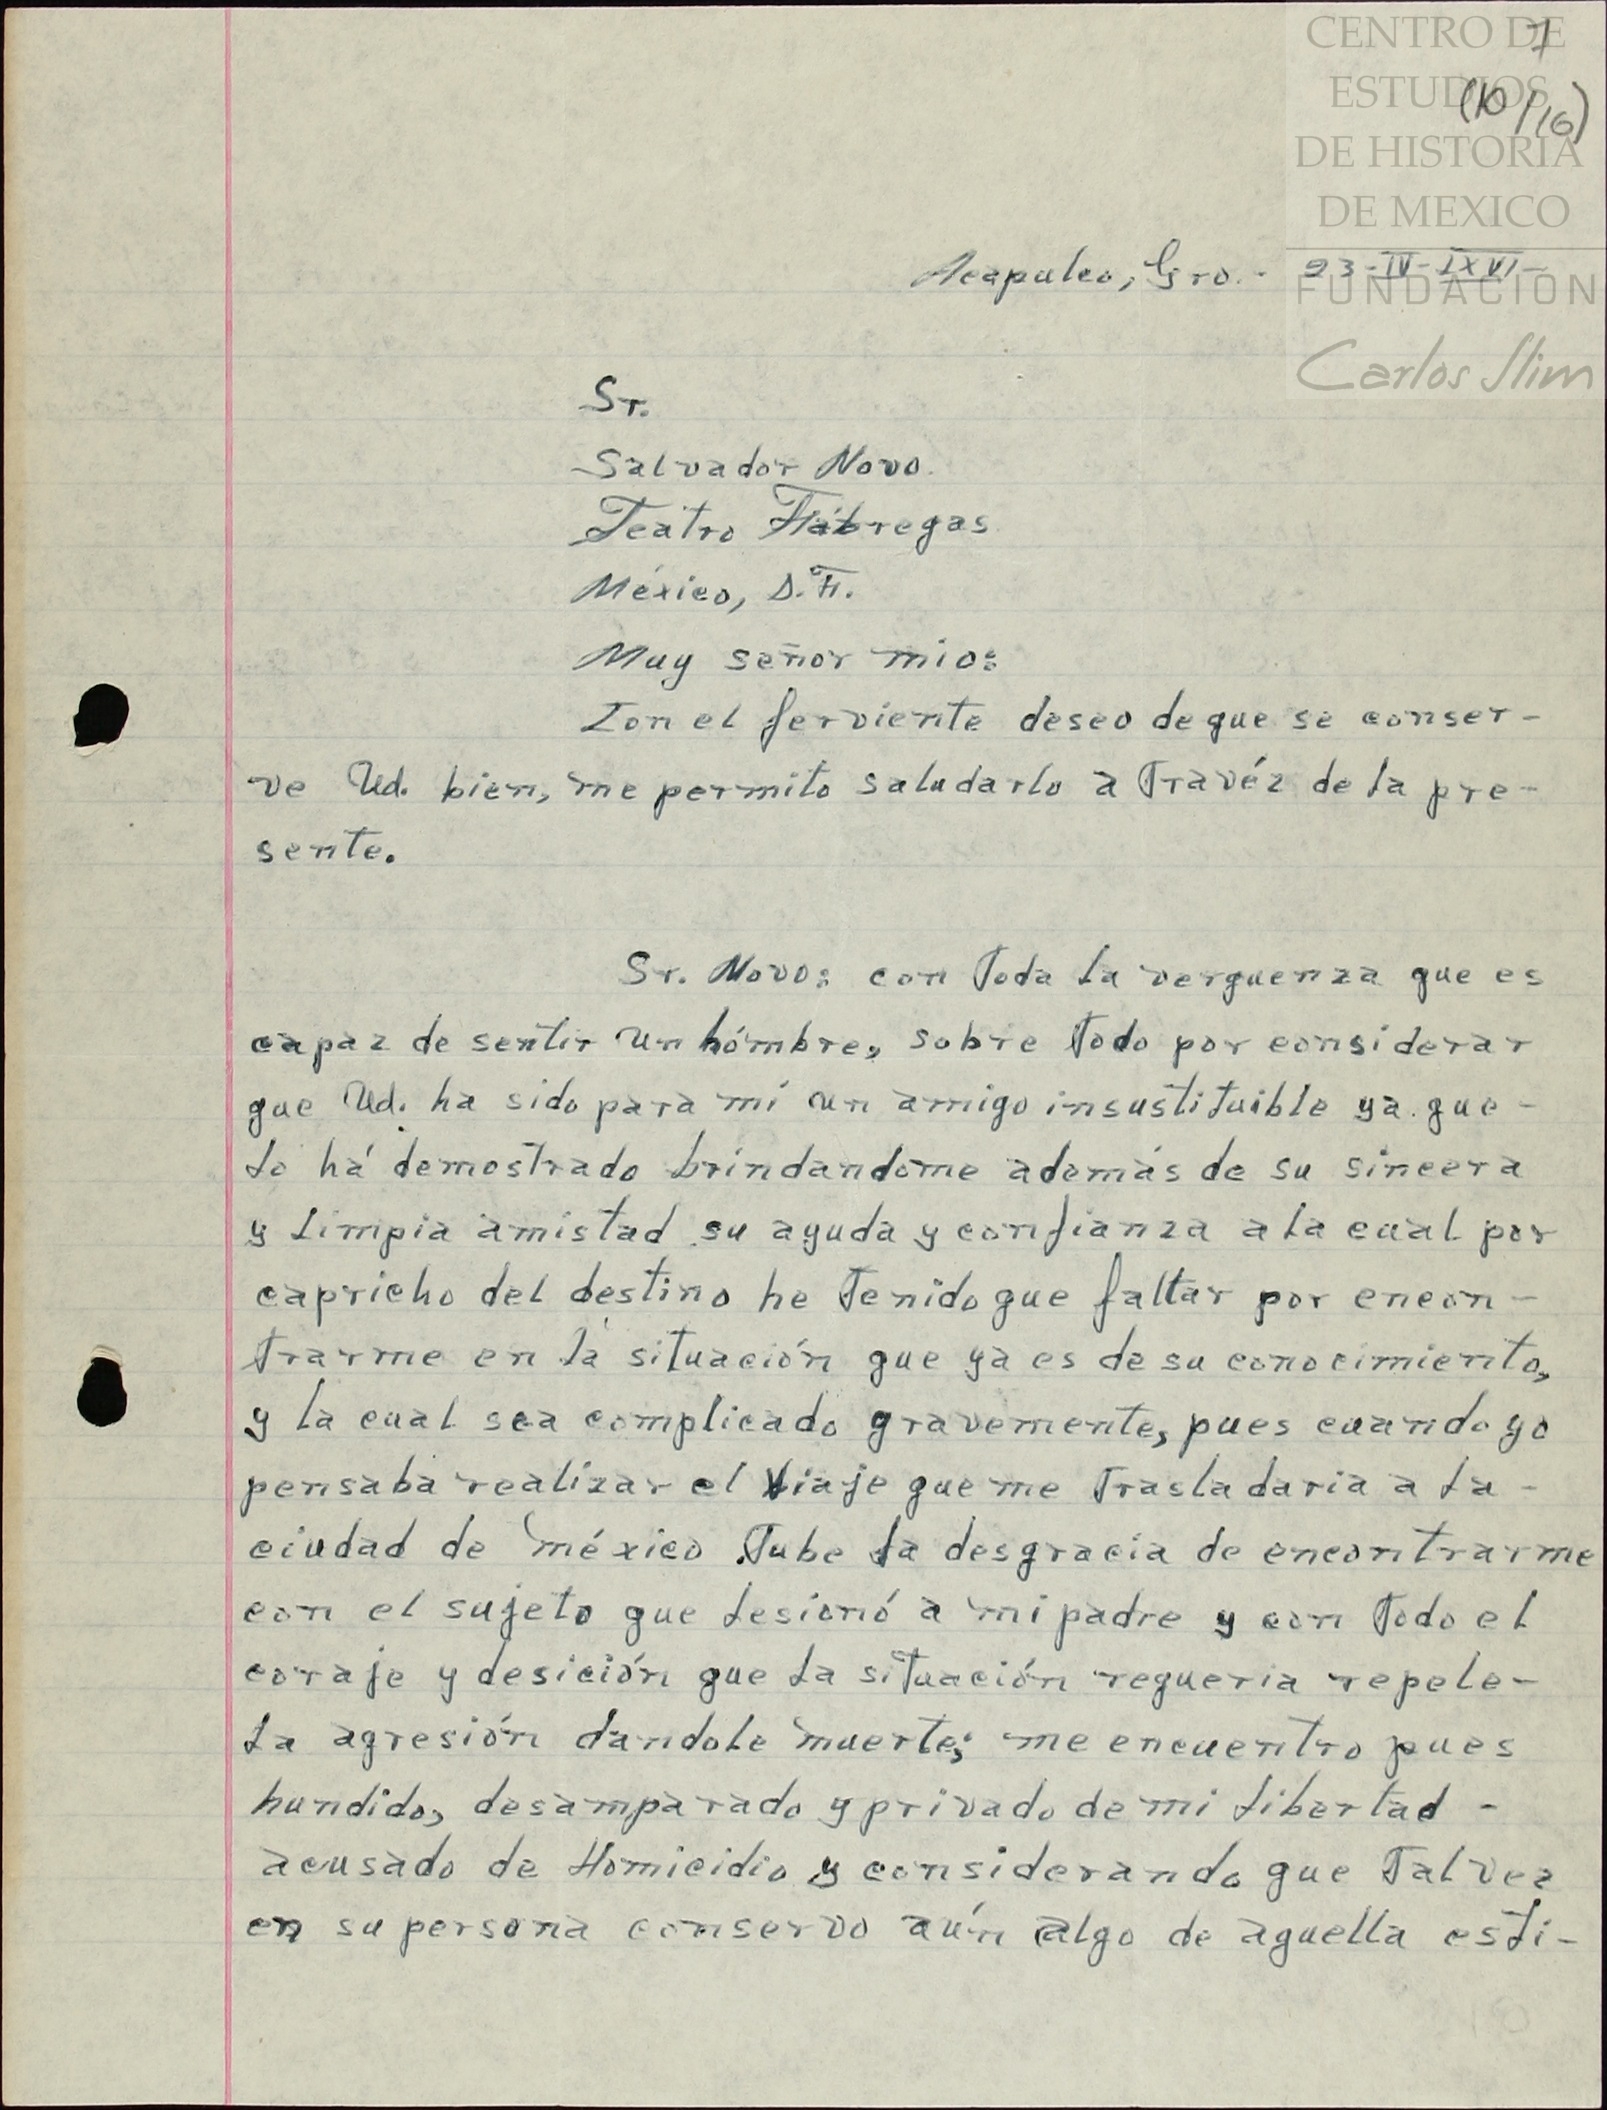 CENTRO DE
ESTUDIOS
DE HISTORIA
DE MEXICO
FUNDACION
Carlos Slim
7
(10/16)
Acapulco, Gro. - 23-IV-LXVI-
Sr.
Salvador Novo.
Teatro Fábregas
México, D.F.
Muy señor mio:
Con el ferviente deseo de que se conser-
ve Ud. bien, me permito saludarlo a travéz de la pre-
sente.
Sr. Novo: con toda la verguenza que es
capaz de sentir un hómbre, sobre todo por considerar
que Ud. ha sido para mí un amigo insustituible ya que-
lo há demostrado brindandome además de su sincera
y limpia amistad su ayuda y confianza a la cual por
capricho del destino he tenido que faltar por encon-
trarme en la situación que ya es de su conocimiento,
y la cual sea complicado gravemente, pues cuando yo
pensaba realizar el viaje que me trasladaria a la-
ciudad de méxico tube la desgracia de encontrarme
con el sujeto que lesionó a mi padre y con todo el
coraje y desición que la situación requeria repele-
la agresión dandole muerte; me encuentro pues
hundido, desamparado y privado de mi libertad -
acusado de Homicidio y considerando que tal vez
en su persona conservo aún algo de aquella esti-